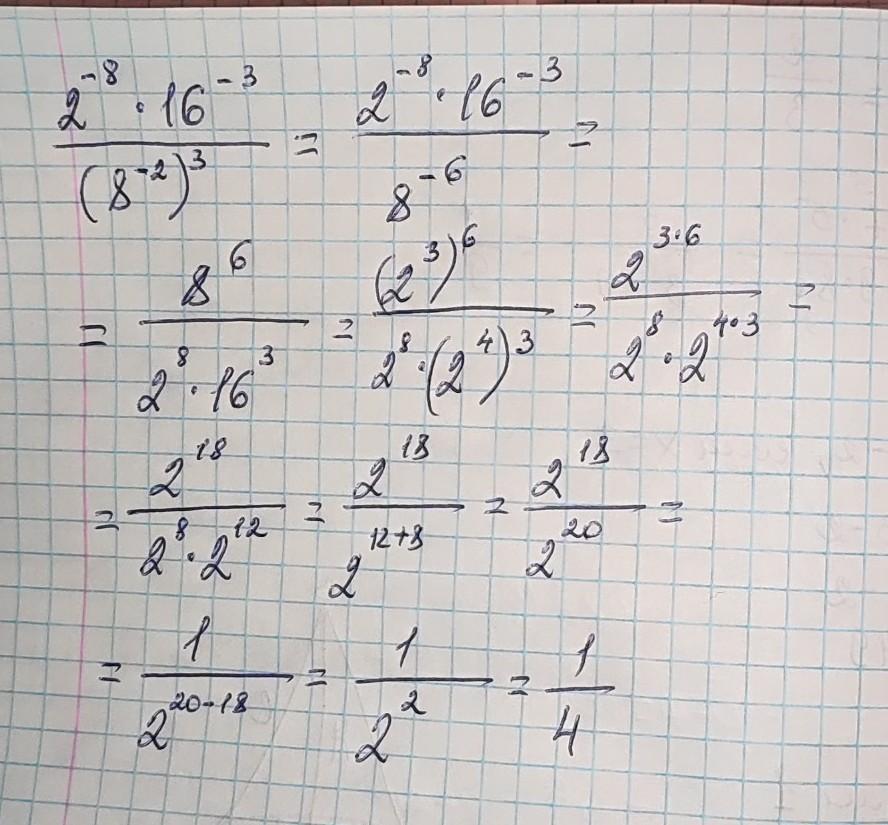 \frac{2^{-8} \cdot 16^{-3}}{(8^{-2})^3} = \frac{2^{-8} \cdot 16^{-3}}{8^{-6}} =
= \frac{8^6}{2^8 \cdot 16^3} = \frac{(2^3)^6}{2^8 \cdot (2^4)^3} = \frac{2^{3 \cdot 6}}{2^8 \cdot 2^{4 \cdot 3}} =
= \frac{2^{18}}{2^8 \cdot 2^{12}} = \frac{2^{18}}{2^{12+8}} = \frac{2^{18}}{2^{20}} =
= \frac{1}{2^{20-18}} = \frac{1}{2^2} = \frac{1}{4}